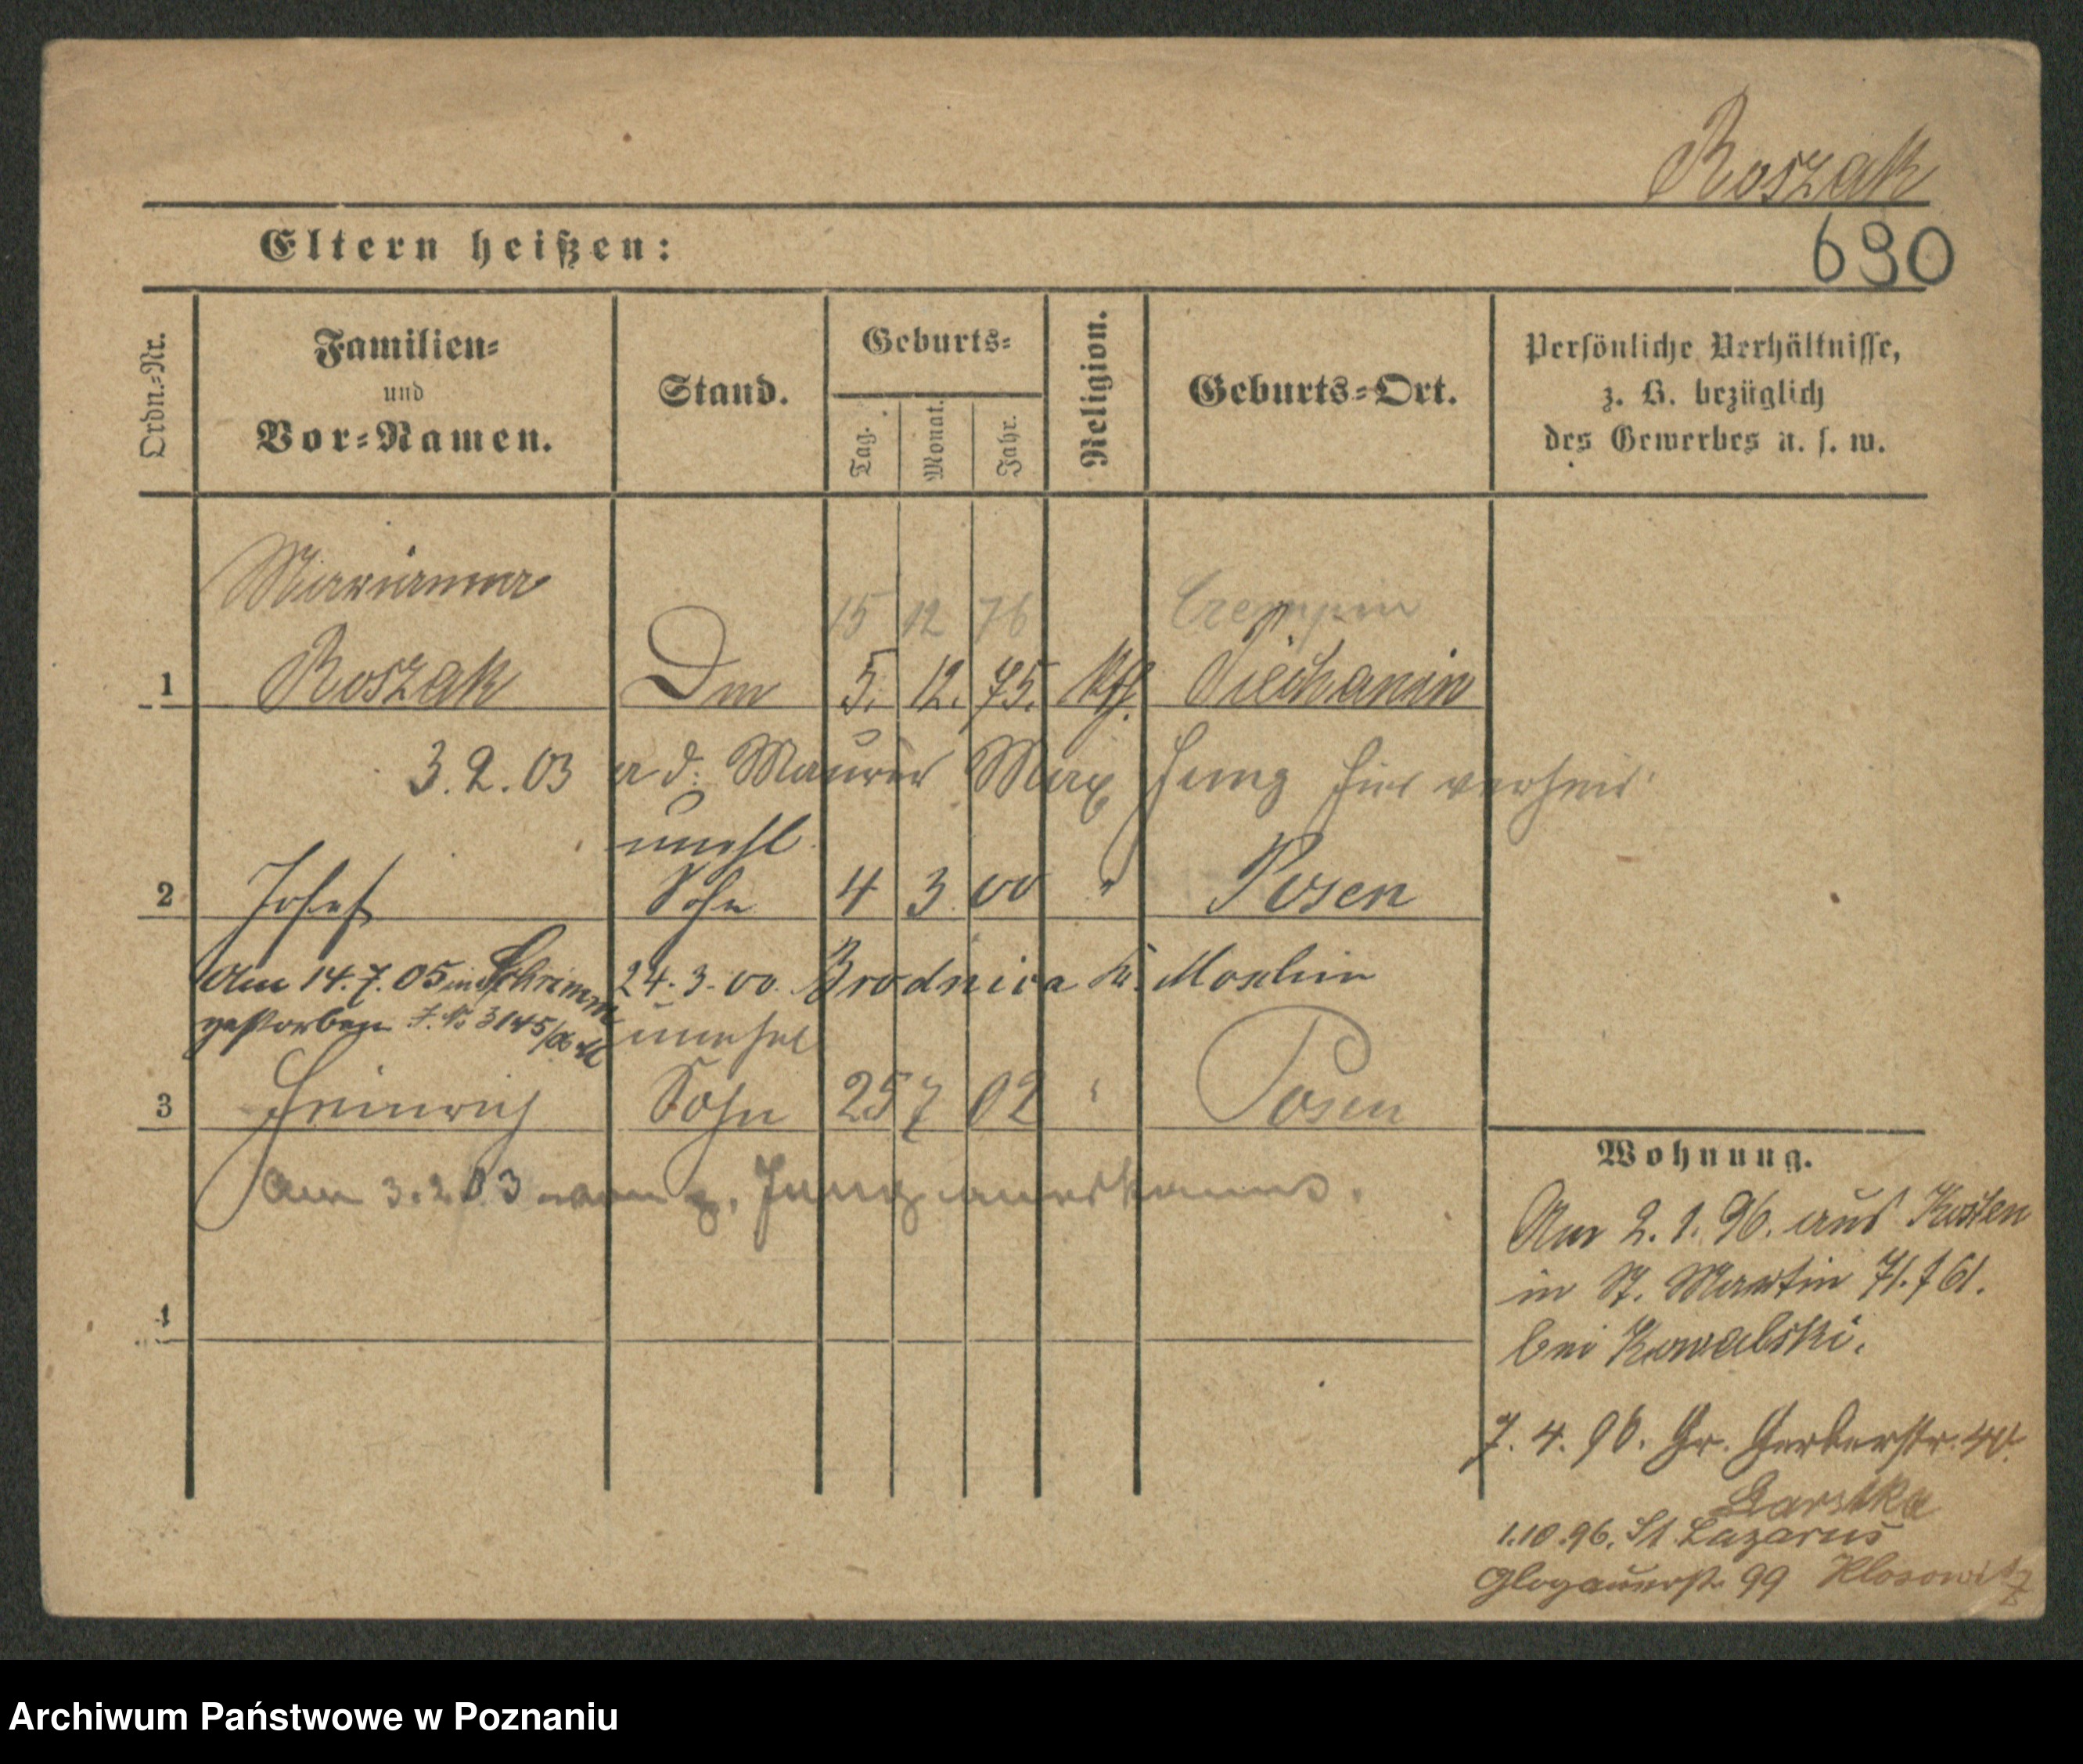 Roszak
Eltern heißen:
690
Ordn.-Nr.
Familien-
und
Vor-Namen.
Stand.
Geburts-
Tag.
Monat.
Jahr.
Religion.
Geburts-Ort.
Persönliche Verhältnisse,
z. B. bezüglich
des Gewerbes u. s. w.
Marianna
15 12 76 Czempin
1 Roszak 5. 12. 75. Kth. Piechanin
3.2.03 a d. Maurer Max Jung hier verheir.
unehl.
2 Josef Sohn 4 3 00 " Posen
Am 14.7.05 in Schrimm 24.3.00. Brodnica Moschin
gestorben J. No 3145/06
unehel
3 Heinrich Sohn 25 7 02 " Posen
am 3.2.03 von g. Jung anerkannt.
Wohnung.
Am 2.1.96. aus Kosten
in St. Martin 71.
bei Kowalski.
4
7.4.96. Gr. Gerberstr. 40.
Barska
1.10.96. St Lazarus
Glogauerstr. 99 Klosowicz
Archiwum Państwowe w Poznaniu